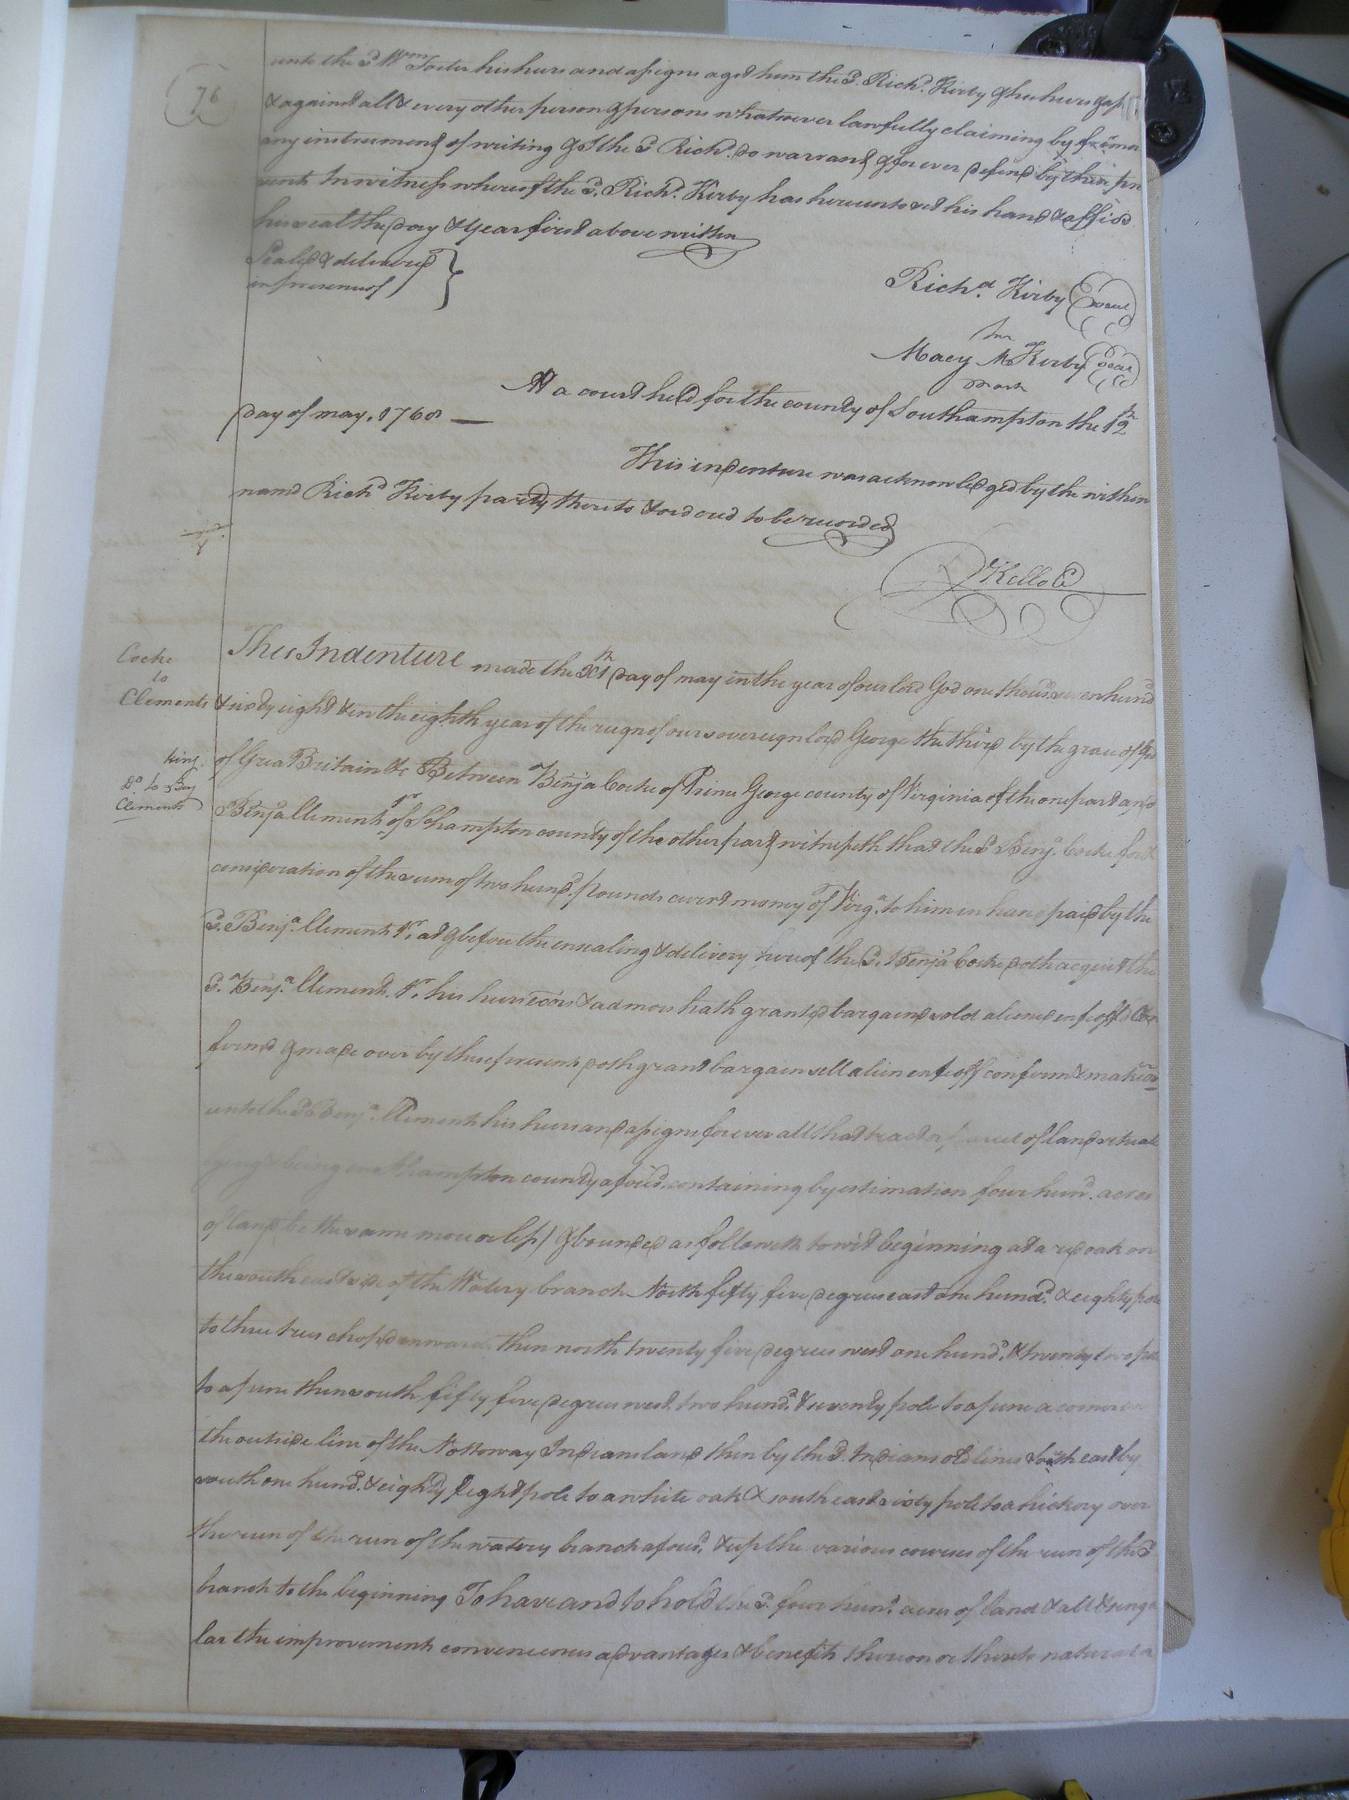 76
unto the sd Wm Foster his heirs and assigns agst him the sd. Richd. Kirby & his heirs &
& against all & every other person & persons whatsoever lawfully claiming by
any instrument of writing of the sd Richd. do warrant & forever defend by these
In witness whereof the sd. Richd. Kirby has hereunto set his hand & affixd
his seal the day & year first above written
Sealed & delivered
in presence of
Richd. Kirby seal
her
Mary M Kirby seal
mark
At a court held for the county of Southampton the 12
day of may, 1768
This indenture was acknowledged by the within
namd Richd Kirby party thereto & ordered to be recorded
R Kello C
Cocke
to
Clements
This Indenture made the day of may in the year of our lord God one thousd. seven hund
& sixty eight & in the eighth year of the reign of our sovereign lord George the third by the grace of God
of Grea Britain &c Between Benja Cocke of Prince George county of Virginia of the one part and
Clements
Benja Clements of Shampton county of the other part witnesseth that the sd Benja. Cocke for &
consideration of the sum of two hund. pounds currt money of Virga. to him in hand paid by the
sd. Benja. Clements at & before the ensealing & delivery hereof the sd. Benja Cocke doth acquit the
sd. Benja. Clements his heirs & admors hath granted bargaind sold aliened enfeoffd
firmd & made over by these presents doth grant bargain sell alien enfeoff confirm & make over
unto the sd Benja. Clements his heirs and assigns forever all that tract or parcel of land situate
lying & being in Shampton county containing by estimation four hund. acres
of land be the same more or less) & bounded as followeth towit beginning at a red oak on
the south east side of the Watery branch North fifty five degrees east one hund. & eighty pole
to three trees chopd inwards then north twenty five degrees west one hund. & twenty two pole
to a pine then south fifty five degrees west two hund. & seventy pole to a pine a corner
the outside line of the Nottoway Indians land then by the sd. Indians old lines south east by
south one hund. & eighty eight pole to a white oak & south east sixty pole to a hickory over
the run of the run of the watery branch & up the various courses of the run of the sd
branch to the beginning To have and to hold the sd. four hund. acres of land & all & singu
lar the improvements conveniences advantages & benefits thereon or thereto